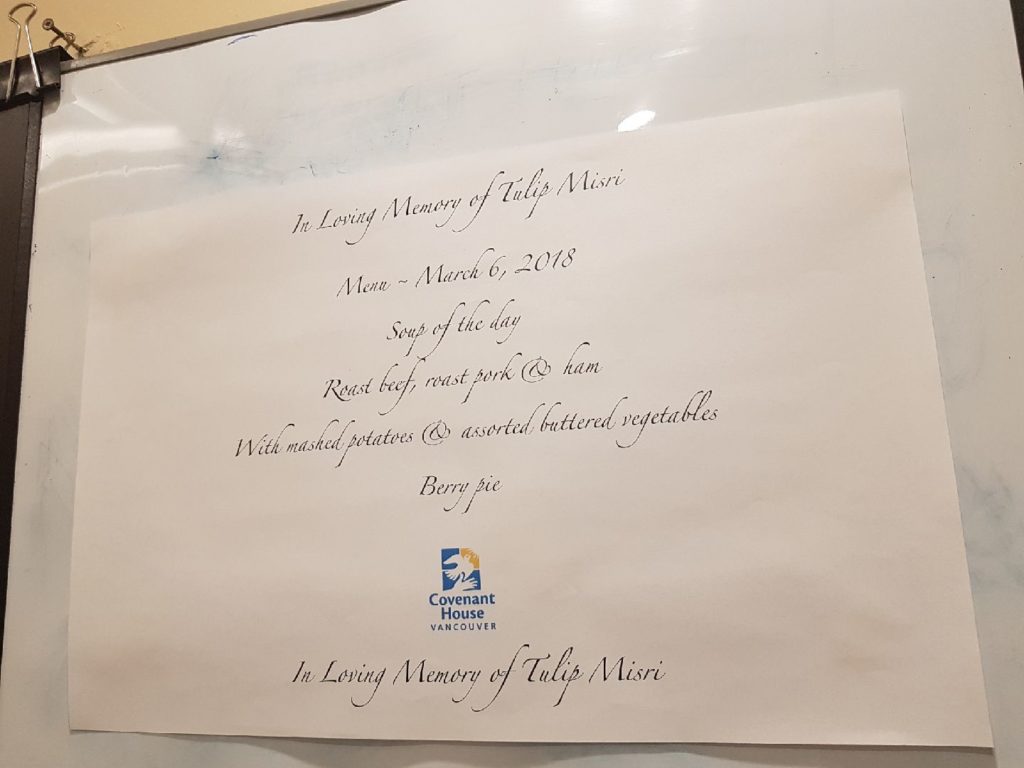 In Loving Memory of Tulip Misri
Menu ~ March 6, 2018
Soup of the day
Roast beef, roast pork & ham
With mashed potatoes & assorted buttered vegetables
Berry pie
Covenant
House
VANCOUVER
In Loving Memory of Tulip Misri